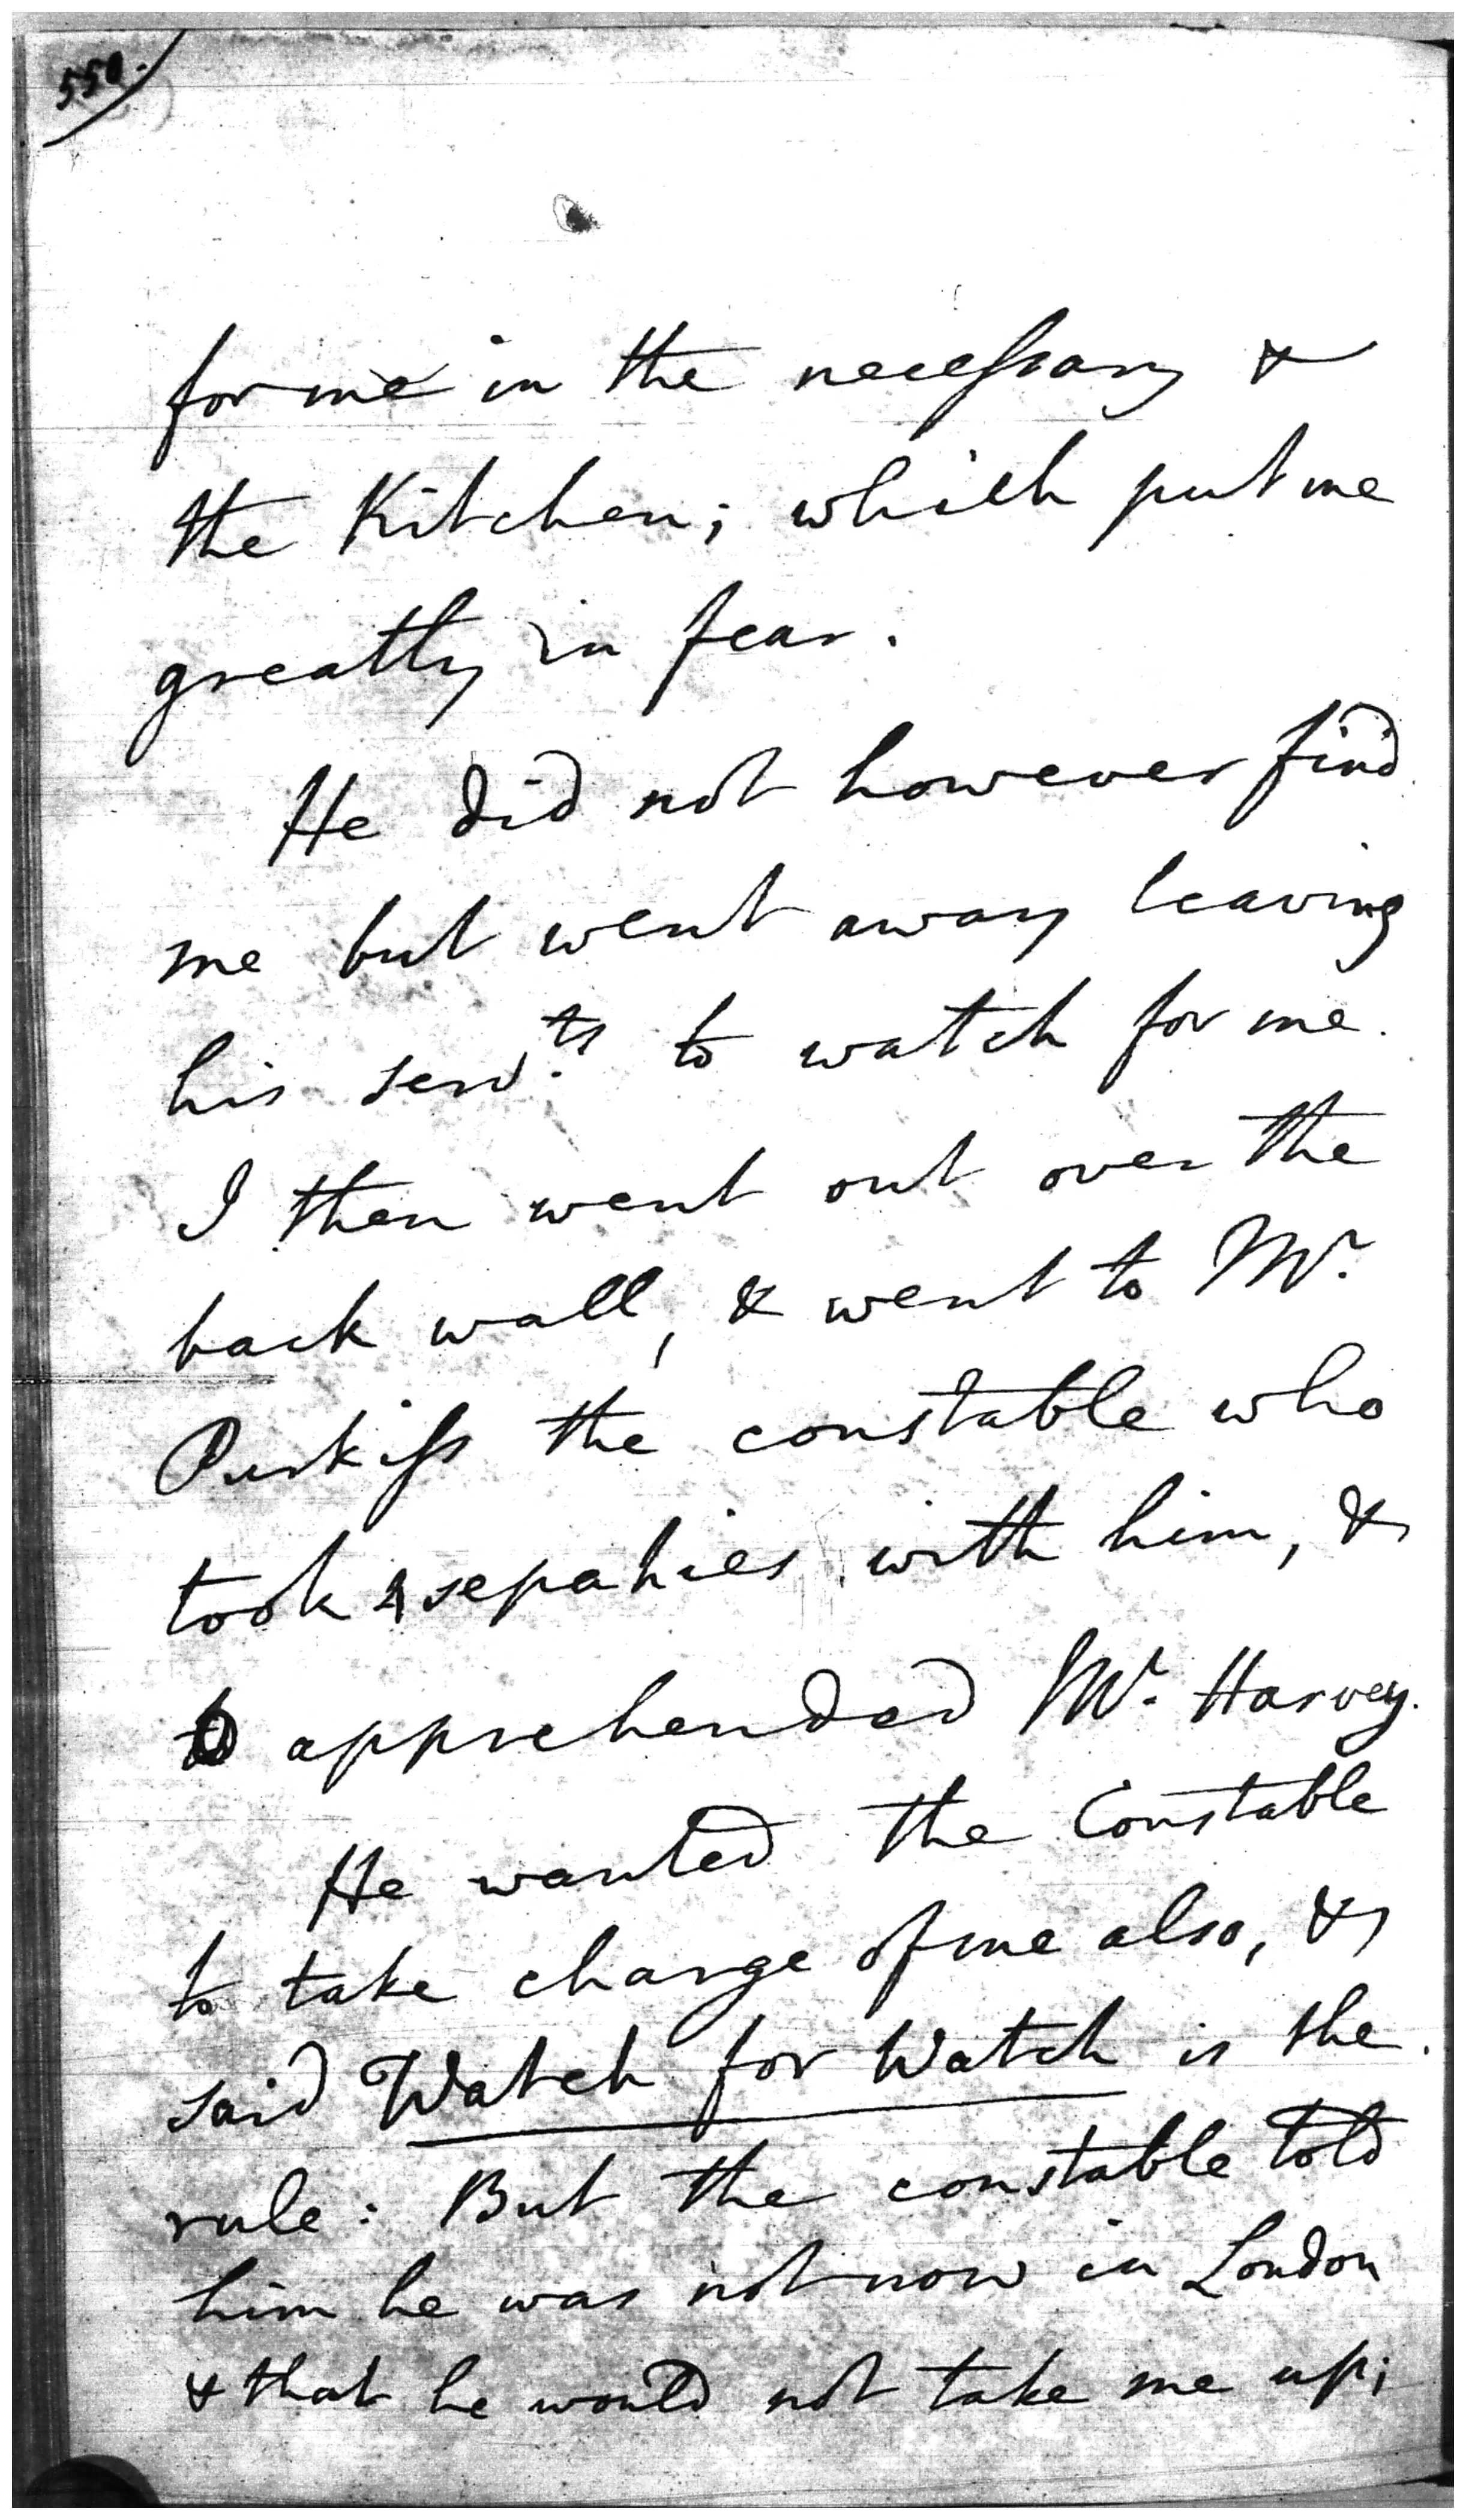 550.
for me in the necessary &
the Kitchen; which put me
greatly in fear.
He did not however find
me but went away leaving
his serv.ts to watch for me.
I then went out over the
back wall, & went to Mr.
Purkiss the constable who
took sepahies with him, &
apprehended Mr. Harvey.
He wanted the Constable
to take charge of me also, &
said Watch for Watch is the
rule: But the constable told
him he was not now in London
& that he would not take me up;